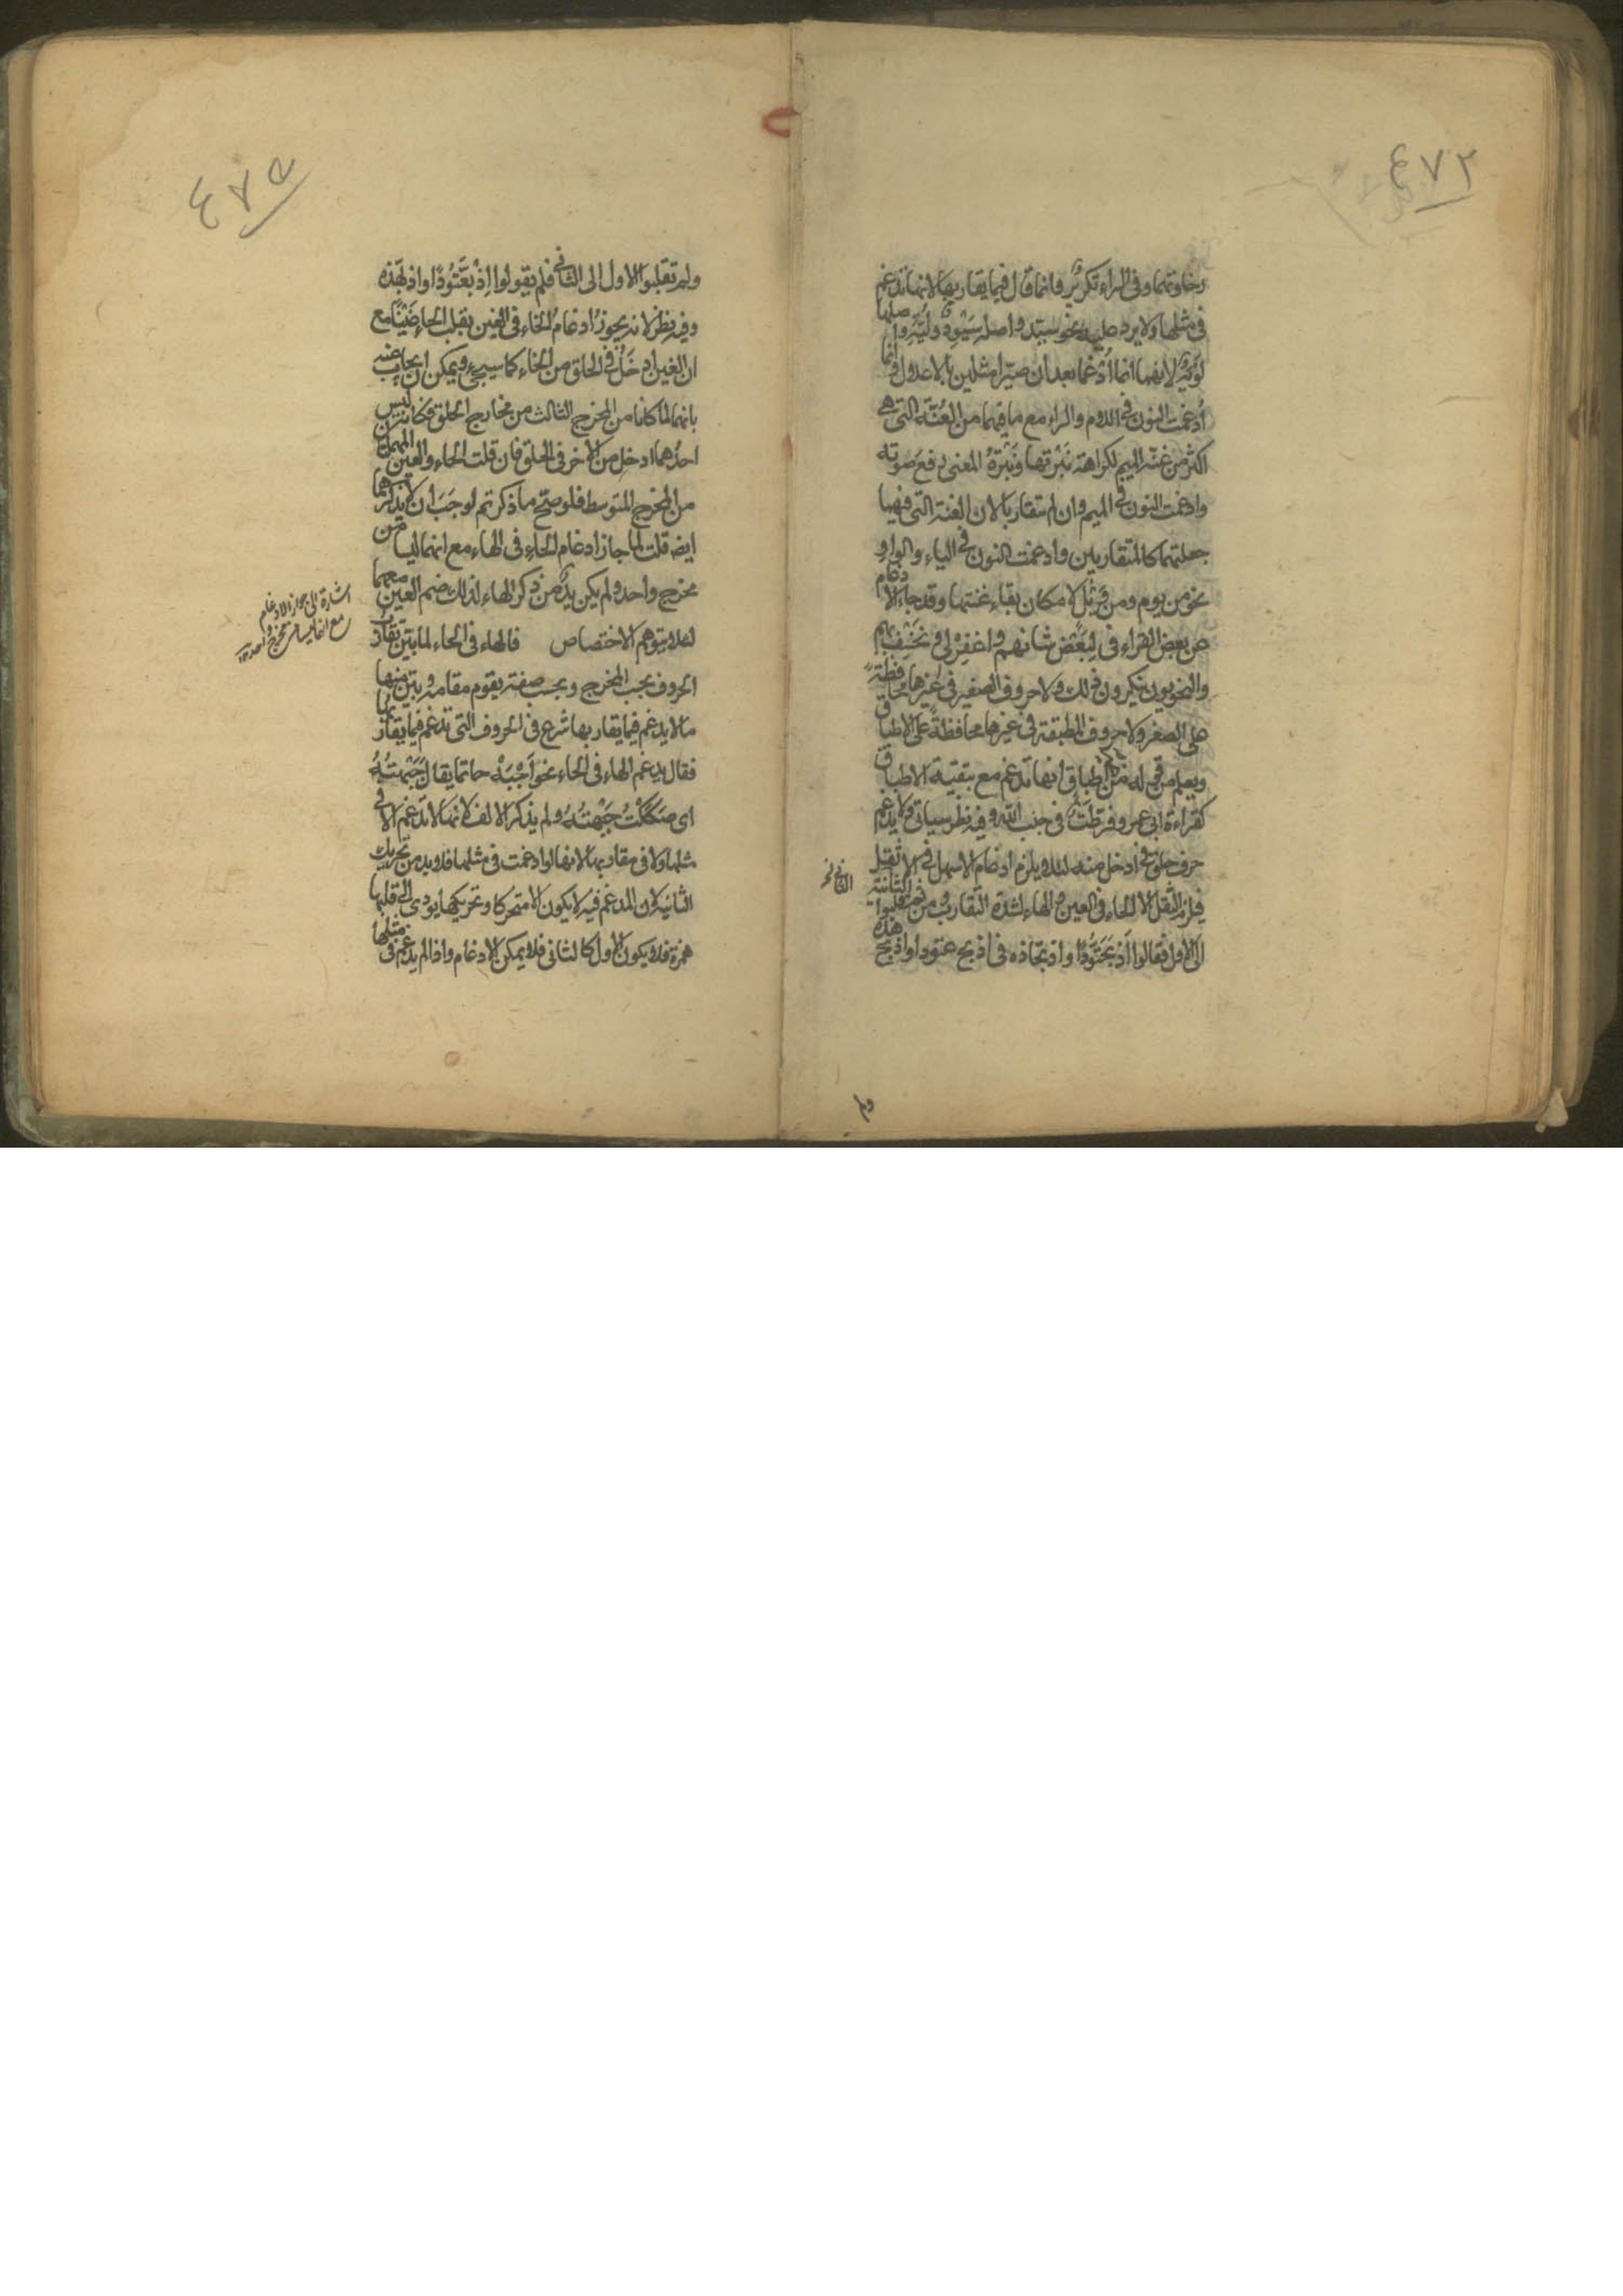 ٤٧٢
رخاوتهما وفى الراء تكرير وانما قال فيما يقاربها لانها تدغم
فى مثلها ولا يرد عليه نحو سيد واصله سَيْوِد ولَيَّة واصلها
لَوْيَة لانهما انما اُدغما بعد ان صيرا مثلين بالاعلال وانما
أُدغمت النون فى اللام والراء مع ما فيهما من الغُنّة التى هى
اكثر من غنة الميم لكراهة نَبْرتها ونَبْرَةُ المغنى رفع صوته
وادغمت النون فى الميم وان لم تتقاربا لان الغنة التى فيهما
جعلتهما كالمتقاربين وادغمت النون فى الياء والواو
نحو من يوم ومن لامكان بقاء غنتها وقد جاء الادغام
عن بعض القراء فى لِبَعْض شانهم واغفِرْ لى ونخسف بهم
والنحويون ينكرون ذلك ولا حروف الصغير فى غيرها محافظةً
على الصفير ولا حروف المطبقة فى غيرها محافظةً على الاطباق
ويعلم من قوله من اطباق انها تدغم مع بقية الاطباق
كقراءة ابى عمرو فرطت فى جنب الله وفيه نظر سياتى ولا يدغم
حرف حلق فى ادخل منه لئلا يلزم ادغام الاسهل فى الاثقل
فيلزم الثقل الا الحاء فى العين والهاء لشدة التقارب ومن ثم قلبوا الثانية
الى الاول فقالوا اذْبَحَّتُودًا واذبحَّاذه فى اذبح عتودا واذبح هذه
ولم
٤٧٥
ولم تقلبوا الاول الى الثانى فلم يقولوا اِذْبَعَّتُودًا واذبهَّذه
وفيه نظر لانه يجوز ادغامُ الخاء فى الغين بقلب الخاء غَيْنًا مع
ان الغين ادخَلُ فى الحلق من الخاء كما سيجئ ويمكن ان يجاب عنه
بانهما لما كانا من المخرج الثالث من مخارج الحلق فكان ليس
احدهما ادخل من الآخر فى الحلق فان قلت الحاء والعين المهملتان
من المخرج المتوسط فلو صح ما ذكرتم لوجَبَ أن لا يذكرهما
ايضه قلت لما جاز ادغام الحاء فى الهاء مع انهما ليسا من
مخرج واحد ولم يكن بدٌّ من ذكر الهاء لذلك ضم العين معهما
لئلا يتوهم الاختصاص فالهاء فى الحاء لما بين تقارب
الحروف بحسب المخرج وبحسب صفة يقوم مقامه وبين منها
ما لا يدغم فيما يقاربها شرع فى الحروف التى تدغم فيما يقاربها
فقال يدغم الهاء فى الحاء نحو اَجْبَهْ حاتما يقال جَبَهتُهُ
اى صَكَكْتُ جَبْهتُهُ ولم يذكر الالف لانها لا تدغم لا فى
مثلها ولا فى مقاربها لانها لو ادغمت فى مثلها فلا بد من تحريك
الثانية لان المدغم فيه لا يكون الا متحركا وتحريكها يودى الى قلبها
همزة فلا يكون الاول كالثانى فلا يمكن الادغام واذا لم يدغم فى مثلها
اشارة الى جواز الادغام
مع انهما ليسا من مخرج واحد ١٢